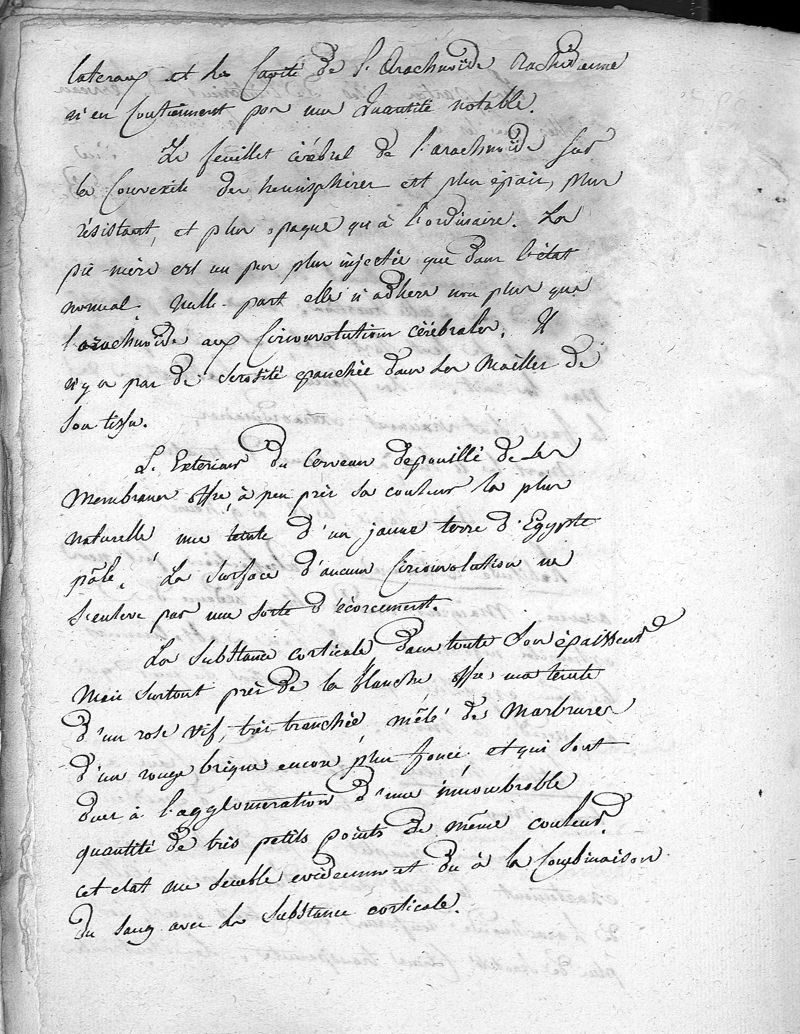 lateraux et la Cavité de l'Arachnoïde Rachidienne
n'en Contiennent pas une Quantité notable.
Le feuillet cérébral de l'arachnoïde sur
la Convexité des hemisphères est plus épais, plus
résistant, et plus opaque qu'à l'ordinaire. La
pie-mère est un peu plus injectée que dans l'état
normal. Nulle-part elle n'adhere non plus que
l'arachnoïde aux Circonvolutions cérébrales. Il
n'y a pas de Serosité epanchée dans les Mailles de
son tissu.
L'Exterieur du Cerveau depouillé de ses
Membranes offre à peu près sa couleur la plus
naturelle une teinte d'un jaune terre d'Egypte
pâle. La surface d'aucune Circonvolution ne
s'enleve par une sorte d'écorcement.
La substance corticale dans toute son épaisseur
Mais surtout près de la blanche offre une teinte
d'un rose vif, très tranchée, mêlé de Marbrures
d'un rouge brique encore plus foncé et qui sont
dues à l'agglomeration d'une innombrable
quantité de tres petits points de même couleur.
cet etat me semble evidemment du à la Combinaison
du sang avec la substance corticale.